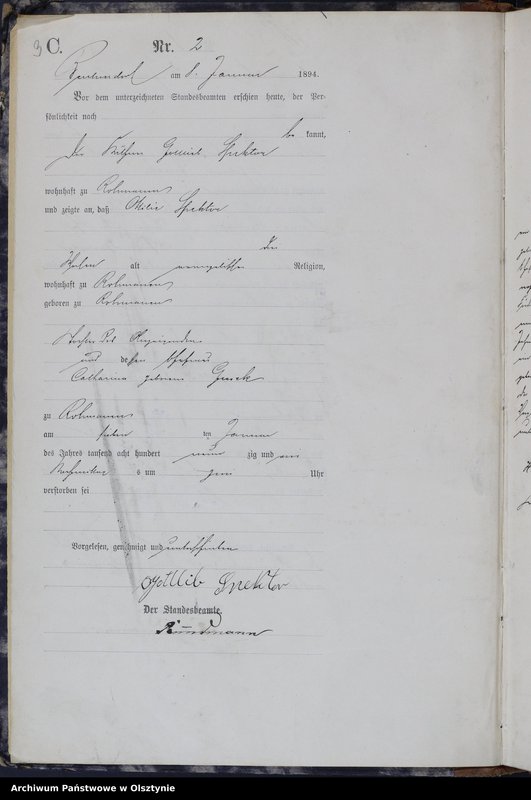 3 C.
Nr. 2
am 8. Januar 1894.
Vor dem unterzeichneten Standesbeamten erschien heute, der Per-
sönlichkeit nach
be kannt,
Der Gottlieb Spektor
wohnhaft zu Rohmanen
und zeigte an, daß Ottilie Spektor
drei
Wochen alt evangelischer Religion,
wohnhaft zu Rohmanen
geboren zu Rohmanen
Tochter des Anzeigenden
und dessen Ehefrau
Catharina geborene
zu Rohmanen
am sieben ten Januar
des Jahres tausend acht hundert neun zig und vier
Nachmittags um zwei Uhr
verstorben sei
Vorgelesen, genehmigt und unterschrieben
Gottlib Spektor
Der Standesbeamte.
Archiwum Państwowe w Olsztynie